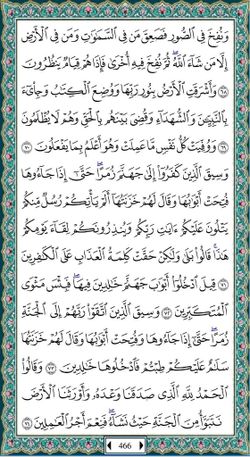 وَنُفِخَ فِى ٱلصُّورِ فَصَعِقَ مَن فِى ٱلسَّمَٰوَٰتِ وَمَن فِى ٱلْأَرْضِ
إِلَّا مَن شَآءَ ٱللَّهُ ۖ ثُمَّ نُفِخَ فِيهِ أُخْرَىٰ فَإِذَا هُمْ قِيَامٌ يَنظُرُونَ
٦٨ وَأَشْرَقَتِ ٱلْأَرْضُ بِنُورِ رَبِّهَا وَوُضِعَ ٱلْكِتَٰبُ وَجِا۟ىٓءَ
بِٱلنَّبِيِّـۧنَ وَٱلشُّهَدَآءِ وَقُضِىَ بَيْنَهُم بِٱلْحَقِّ وَهُمْ لَا يُظْلَمُونَ
٦٩ وَوُفِّيَتْ كُلُّ نَفْسٍ مَّا عَمِلَتْ وَهُوَ أَعْلَمُ بِمَا يَفْعَلُونَ
٧٠ وَسِيقَ ٱلَّذِينَ كَفَرُوٓا۟ إِلَىٰ جَهَنَّمَ زُمَرًا ۖ حَتَّىٰٓ إِذَا جَآءُوهَا
فُتِحَتْ أَبْوَٰبُهَا وَقَالَ لَهُمْ خَزَنَتُهَآ أَلَمْ يَأْتِكُمْ رُسُلٌ مِّنكُمْ
يَتْلُونَ عَلَيْكُمْ ءَايَٰتِ رَبِّكُمْ وَيُنذِرُونَكُمْ لِقَآءَ يَوْمِكُمْ
هَٰذَا ۚ قَالُوا۟ بَلَىٰ وَلَٰكِنْ حَقَّتْ كَلِمَةُ ٱلْعَذَابِ عَلَى ٱلْكَٰفِرِينَ
٧١ قِيلَ ٱدْخُلُوٓا۟ أَبْوَٰبَ جَهَنَّمَ خَٰلِدِينَ فِيهَا ۖ فَبِئْسَ مَثْوَى
ٱلْمُتَكَبِّرِينَ ٧٢ وَسِيقَ ٱلَّذِينَ ٱتَّقَوْا۟ رَبَّهُمْ إِلَى ٱلْجَنَّةِ
زُمَرًا ۖ حَتَّىٰٓ إِذَا جَآءُوهَا وَفُتِحَتْ أَبْوَٰبُهَا وَقَالَ لَهُمْ خَزَنَتُهَا
سَلَٰمٌ عَلَيْكُمْ طِبْتُمْ فَٱدْخُلُوهَا خَٰلِدِينَ ٧٣ وَقَالُوا۟
ٱلْحَمْدُ لِلَّهِ ٱلَّذِى صَدَقَنَا وَعْدَهُۥ وَأَوْرَثَنَا ٱلْأَرْضَ
نَتَبَوَّأُ مِنَ ٱلْجَنَّةِ حَيْثُ نَشَآءُ ۖ فَنِعْمَ أَجْرُ ٱلْعَٰمِلِينَ ٧٤
466